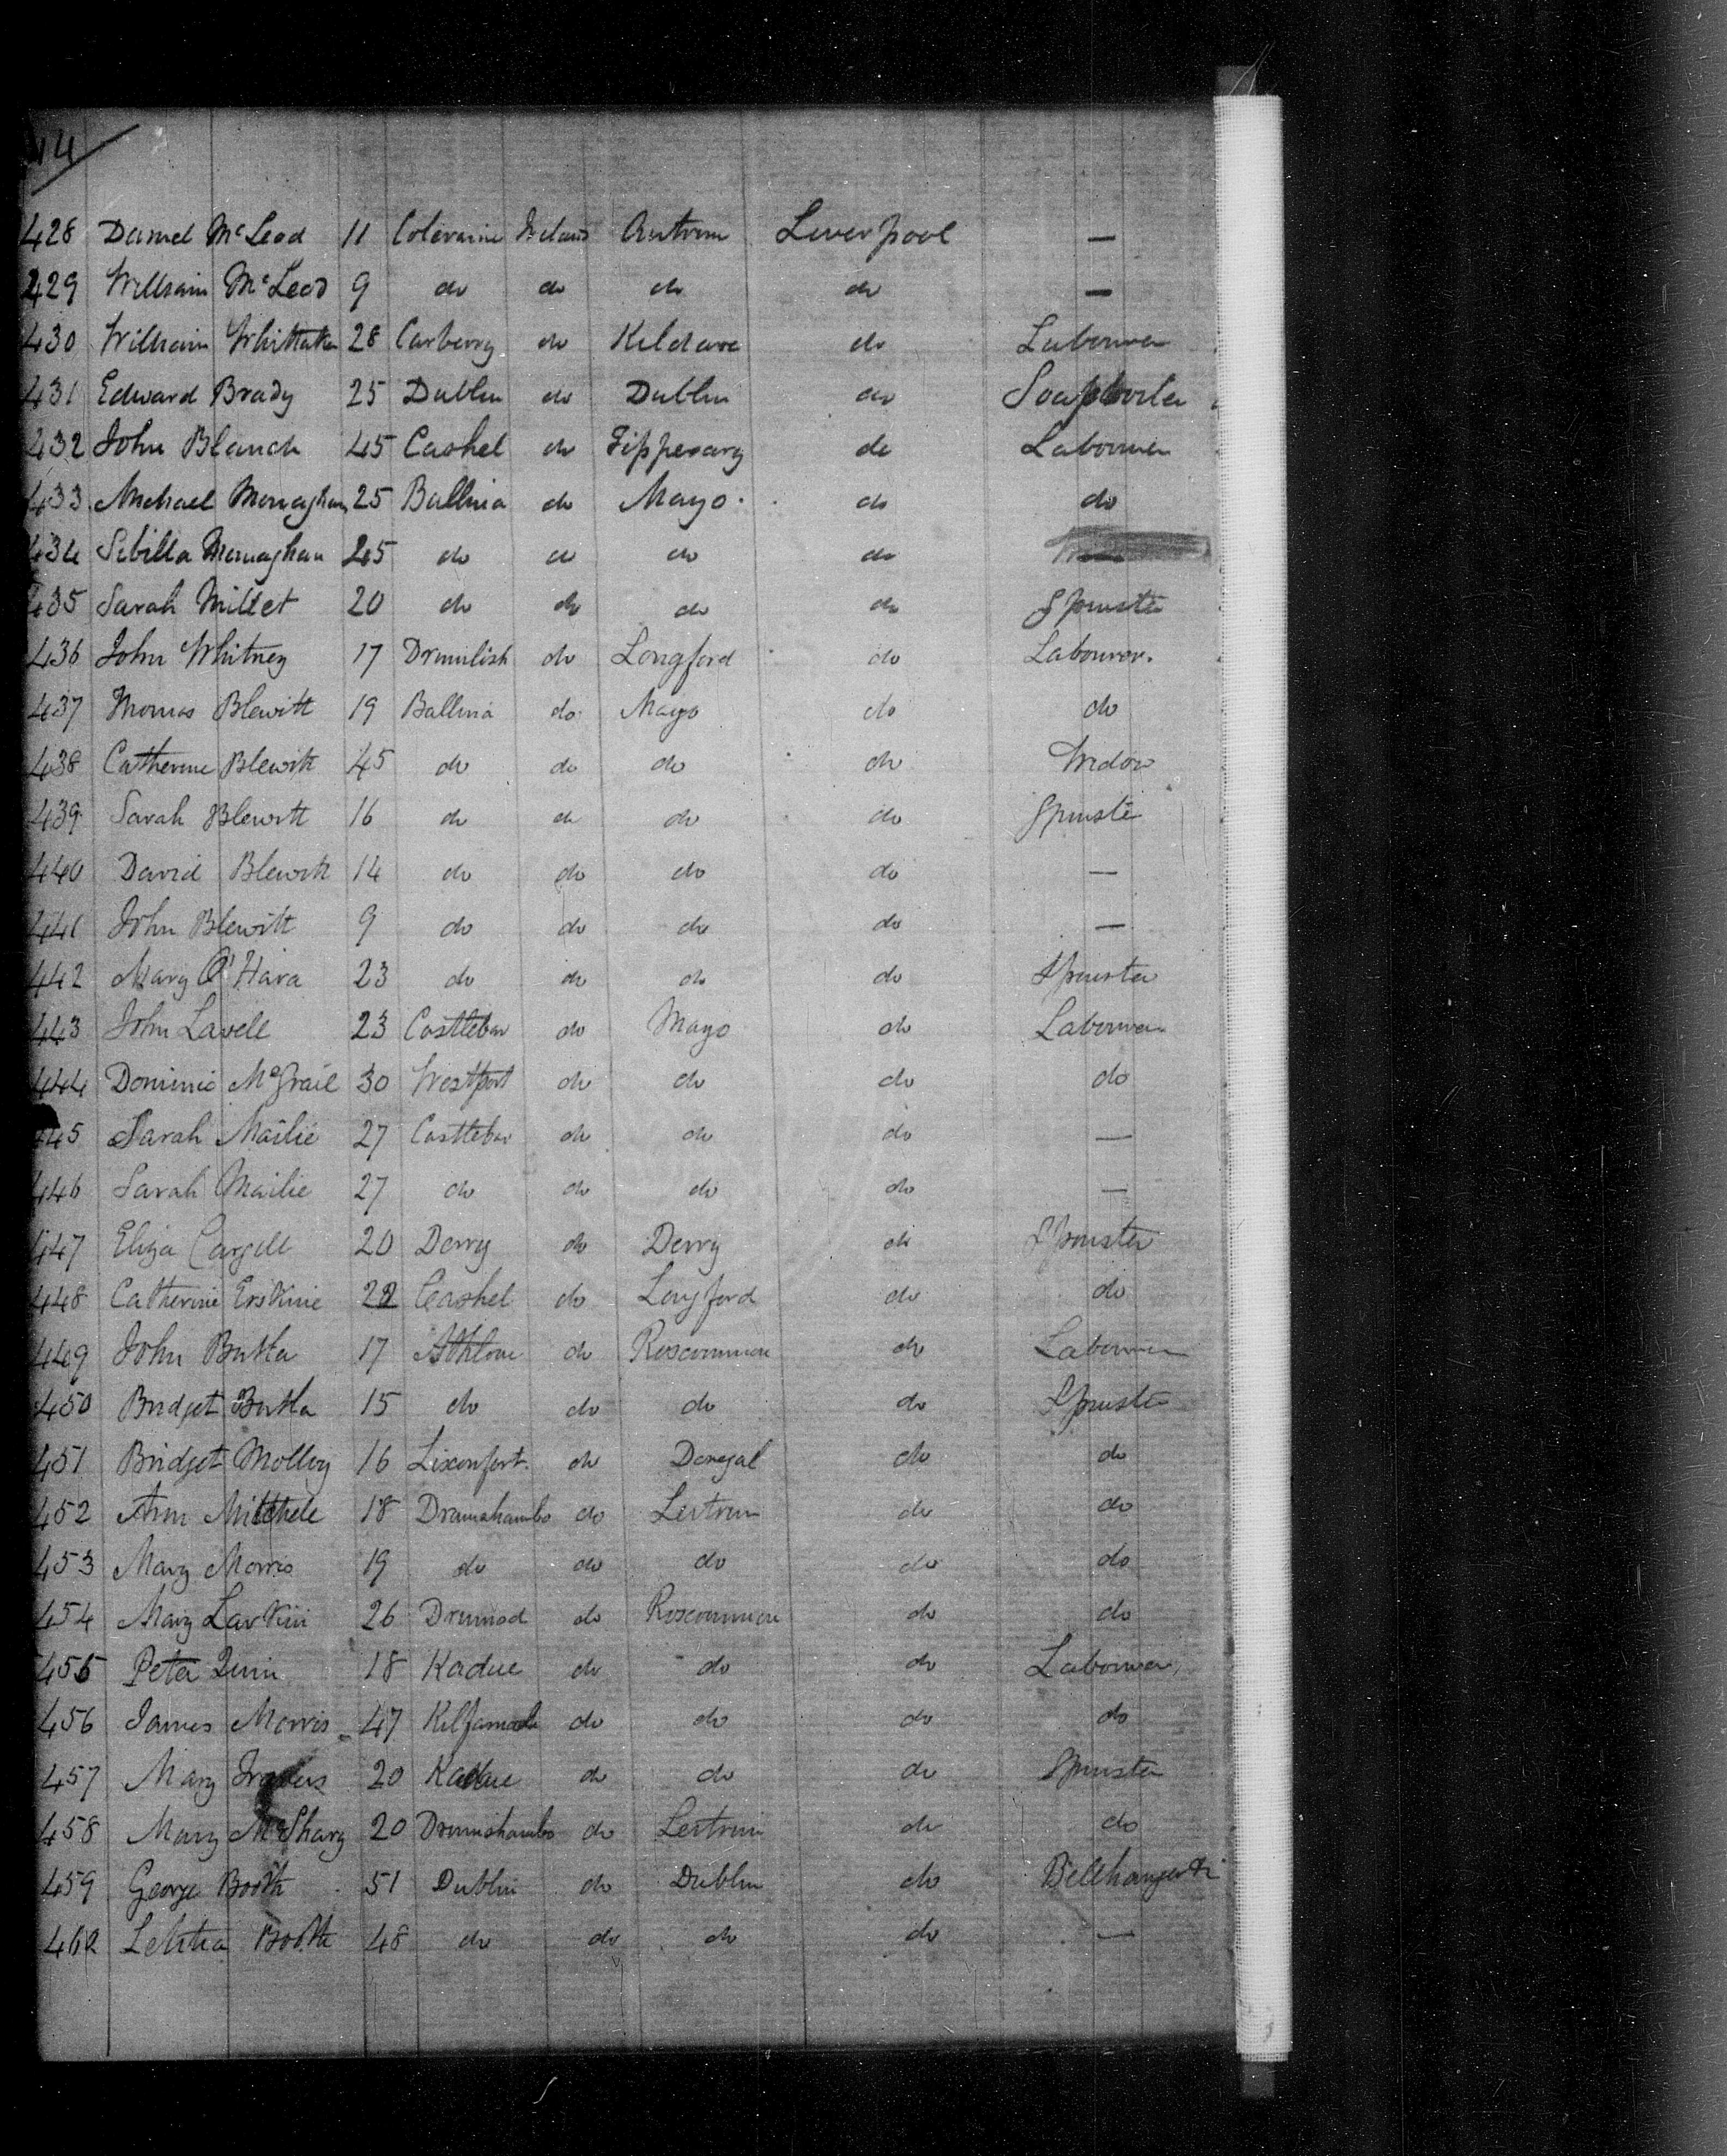 14
428 Daniel McLeod 11 Coleraine Ireland Antrim Liverpool —
429 William McLeod 9 do do do do —
430 William Whittaker 28 Carberry do Kildare do Labourer
431 Edward Brady 25 Dublin do Dublin do Soapboiler
432 John Blanch 45 Cashel do Tipperary do Labourer
433 Michael Monaghan 25 Ballina do Mayo do do
434 Sibilla Monaghan 25 do do do do
435 Sarah Millet 20 do do do do Spinster
436 John Whitney 17 Drumlish do Longford do Labourer.
437 Thomas Blewitt 19 Ballina do Mayo do do
438 Catherine Blewitt 45 do do do do Widow
439 Sarah Blewitt 16 do do do do Spinster
440 David Blewitt 14 do do do do —
441 John Blewitt 9 do do do do —
442 Mary O'Hara 23 do do do do Spinster
443 John Lavelle 23 Castlebar do Mayo do Labourer
444 Dominic McGrail 30 Westport do do do do
445 Sarah Mailie 27 Castlebar do do do —
446 Sarah Mailie 27 do do do do —
447 Eliza Cargill 20 Derry do Derry do Spinster
448 Catherine Erskine 22 Cashel do Longford do do
449 John Butler 17 Athlone do Roscommon do Labourer
450 Bridget Butler 15 do do do do Spinster
451 Bridget Molloy 16 do Donegal do do
452 Ann Mitchele 18 Drumshambo do Leitrim do do
453 Mary Morris 19 do do do do do
454 Mary Larkin 26 Drumod do Roscommon do do
455 Peter Quin 18 Kadue do do do Labourer
456 James Morris 47 do do do do
457 Mary Travers 20 Kadue do do do Spinster
458 Mary McSharry 20 Drumshambo do Leitrim do do
459 George Booth 51 Dublin do Dublin do Bellhanger
460 Letitia Booth 48 do do do do —